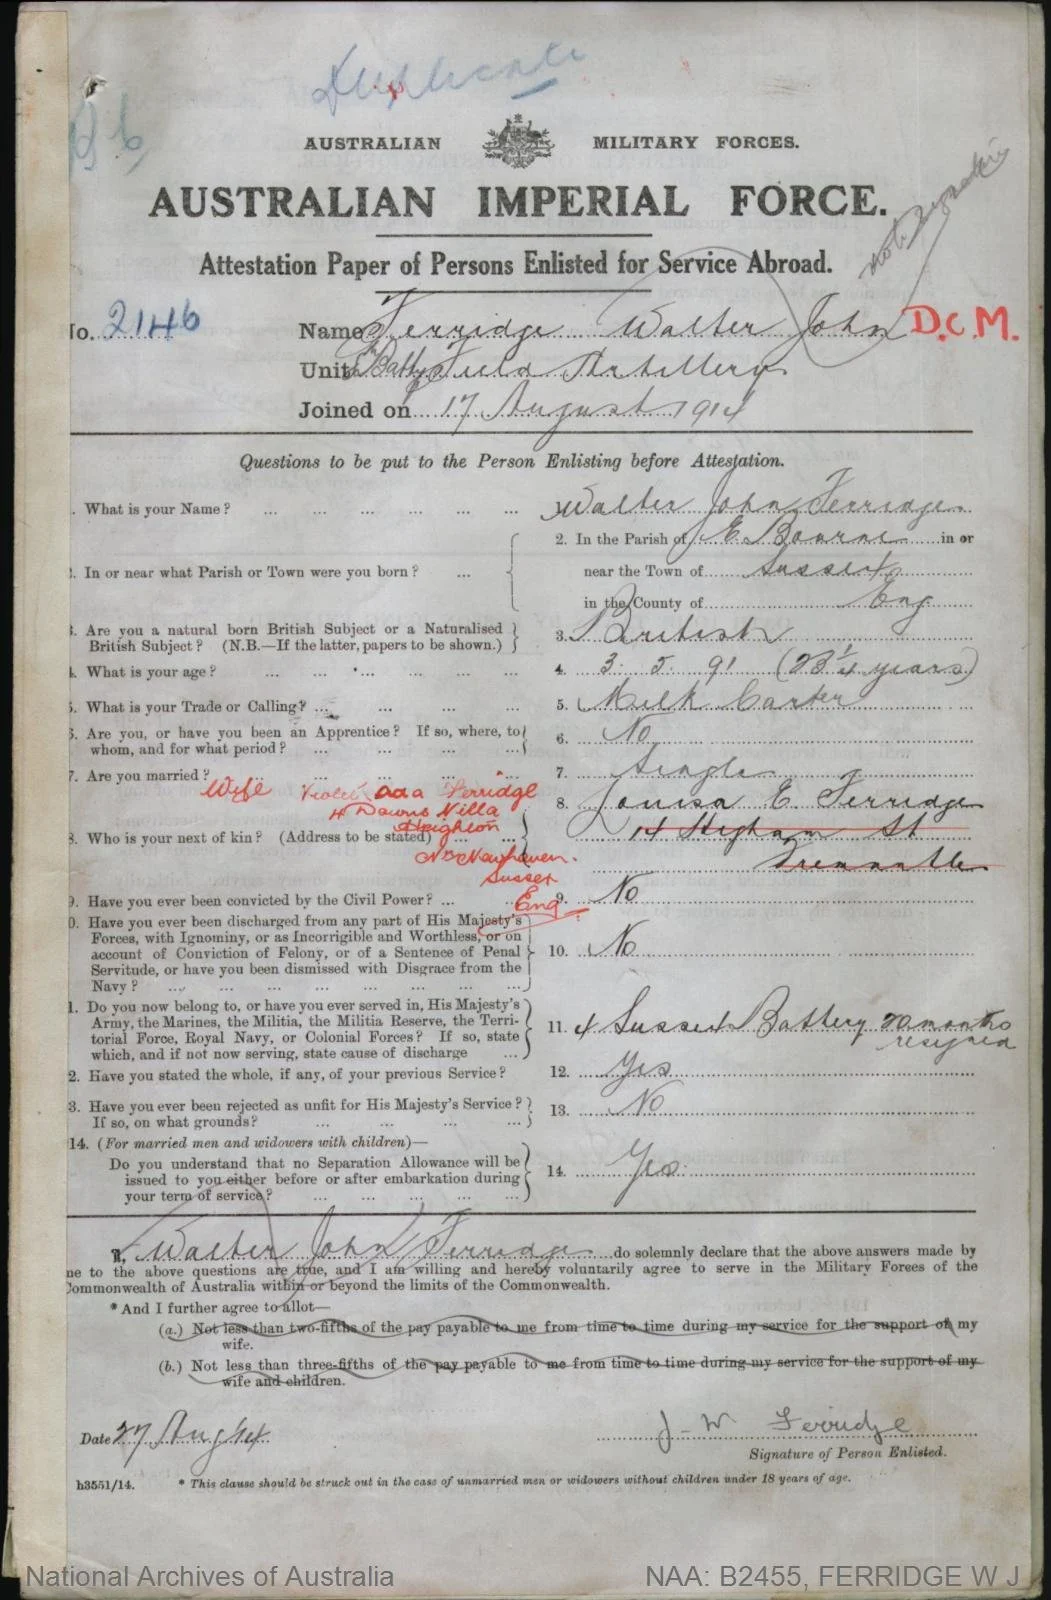 Duplicate
AUSTRALIAN MILITARY FORCES.
AUSTRALIAN IMPERIAL FORCE.
Attestation Paper of Persons Enlisted for Service Abroad.
No. 2146 Name Ferridge Walter John D.C.M.
Unit Batty Field Artillery
Joined on 17 August 1914
Questions to be put to the Person Enlisting before Attestation.
1. What is your Name? ... 1. Walter John Ferridge
2. In or near what Parish or Town were you born? ... 2. In the Parish of E. Bourne in or
near the Town of Sussex
in the County of Eng
3. Are you a natural born British Subject or a Naturalised
British Subject? (N.B.—If the latter, papers to be shown.) 3. British
4. What is your age? ... 4. 3. 5. 91 (23 1/4 years)
5. What is your Trade or Calling? ... 5. Milk Carter
6. Are you, or have you been an Apprentice? If so, where, to
whom, and for what period? ... 6. No
7. Are you married? ... 7. Single
Wife Violet Ada Ferridge
4 Downs Villa
Heighton
Nr Newhaven.
Sussex
Eng
8. Who is your next of kin? (Address to be stated) ... 8. Louisa E. Ferridge
14 Higham St
Fremantle
9. Have you ever been convicted by the Civil Power? ... 9. No
10. Have you ever been discharged from any part of His Majesty's
Forces, with Ignominy, or as Incorrigible and Worthless, or on
account of Conviction of Felony, or of a Sentence of Penal
Servitude, or have you been dismissed with Disgrace from the
Navy? ... 10. No
11. Do you now belong to, or have you ever served in, His Majesty's
Army, the Marines, the Militia, the Militia Reserve, the Terri-
torial Force, Royal Navy, or Colonial Forces? If so, state
which, and if not now serving, state cause of discharge ... 11. 4 Sussex Battery 20 months
resigned
12. Have you stated the whole, if any, of your previous Service? 12. Yes
13. Have you ever been rejected as unfit for His Majesty's Service?
If so, on what grounds? ... 13. No
14. (For married men and widowers with children)—
Do you understand that no Separation Allowance will be
issued to you either before or after embarkation during
your term of service? ... 14. Yes
I, Walter John Ferridge do solemnly declare that the above answers made by
me to the above questions are true, and I am willing and hereby voluntarily agree to serve in the Military Forces of the
Commonwealth of Australia within or beyond the limits of the Commonwealth.
* And I further agree to allot—
(a.) Not less than two-fifths of the pay payable to me from time to time during my service for the support of my
wife.
(b.) Not less than three-fifths of the pay payable to me from time to time during my service for the support of my
wife and children.
Date 27 Aug 14 J-W Ferridge
Signature of Person Enlisted.
h3551/14. * This clause should be struck out in the case of unmarried men or widowers without children under 18 years of age.
National Archives of Australia NAA: B2455, FERRIDGE W J